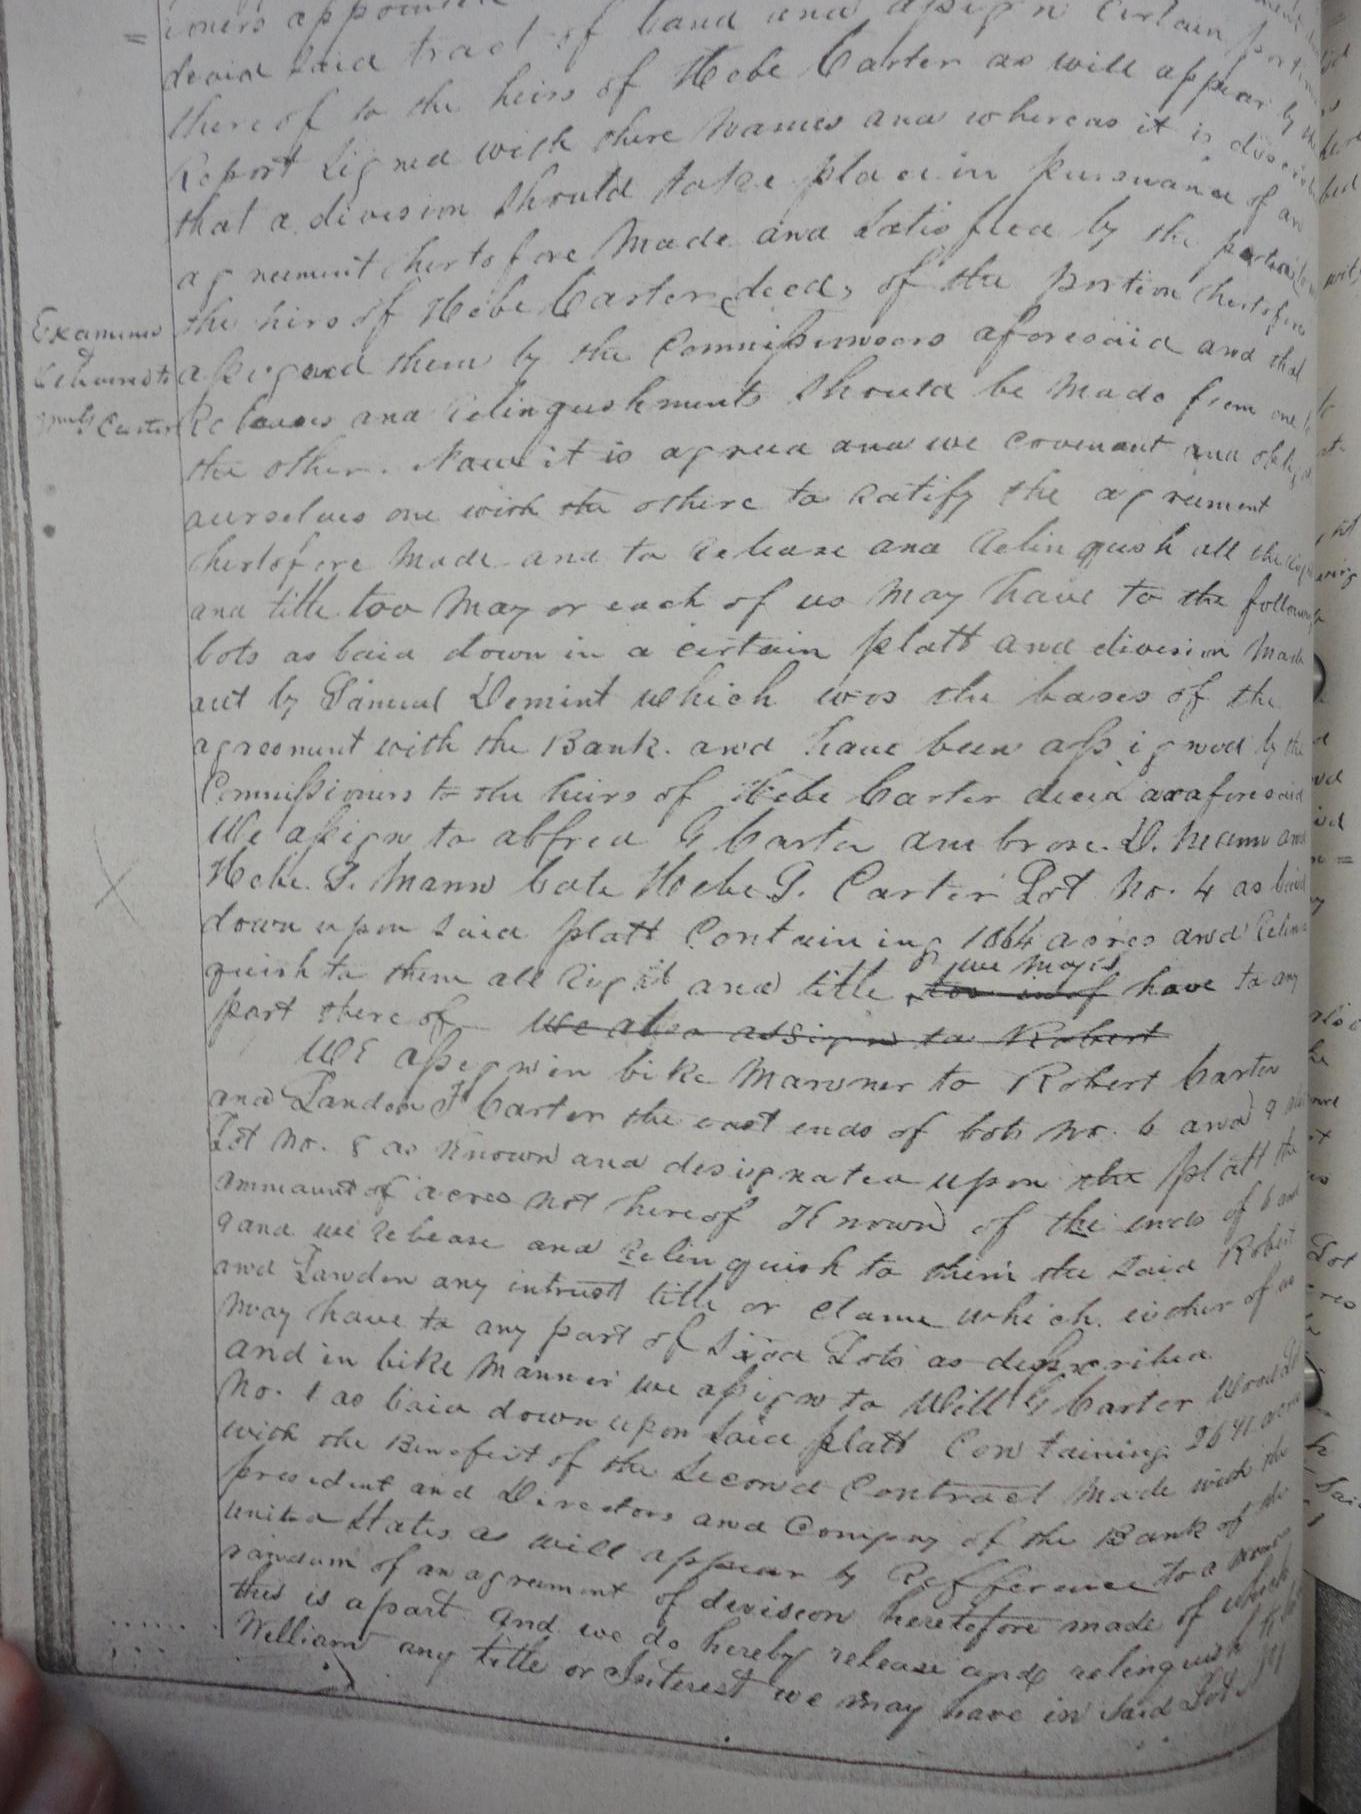 ioners appointed
devid said tract of Land and assign Certain portions
there of to the heirs of Hebe Carter as will appear by the
Report Signed with there Names and whereas it is
that a division should take place in pursuance of an
agreement hertofore Made and Satisfied by the
the hirs of Hebe Carter decd, of the Portion hertofore
Examined
assigned them by the Commissinoors aforesaid and that
&
Releases and Relinqushments should be Made from one to
Carter
the other. Now it is agreed and we Covenant and oblige
ourselves one with the othere to Ratify the agreement
hertofore Made and to Release and Relinqush all the
and title too May or each of us May have to the following
Lots as Laid down in a certain platt and division Made
out by Samuel Demint which was the bases of the
agreement with the Bank. and have been assigned by the
Commissioners to the heirs of Hebe Carter decd as aforesaid
We assign to alfred G Carter ambrose. D. Mann and
Hebe. G. Mann Late Hebe G. Carter Lot No. 4 as Laid
down upon said platt Containing 1064 acres and Relin
we Mays
quish to them all Right and title have to any
part there of We also assign to Robert
We assign in Like Manner to Robert Carter
and Landon F Carter the east ends of Lots No. 6 and 9
Lot No. 8 as Known and designated upon the platt the
ammount of acres not hereof Known of the ends of 6 and
9 and we Release and Relinquish to them the Said Robert
and Landon any intrust title or Clame which either of us
May have to any part of Said Lots as described
and in Like Manner we assign to Will G Carter
No. 1 as Laid down upon Said platt Containing 2641 acres
with the Benefeit of the Second Contract Made with the
president and Directors and Company of the Bank of the
united States as will appear by Refference to a
randum of an agreement of devision heretofore made of which
this is apart and we do hereby release and relinquish to
William any title or Interest we may have in said Lot